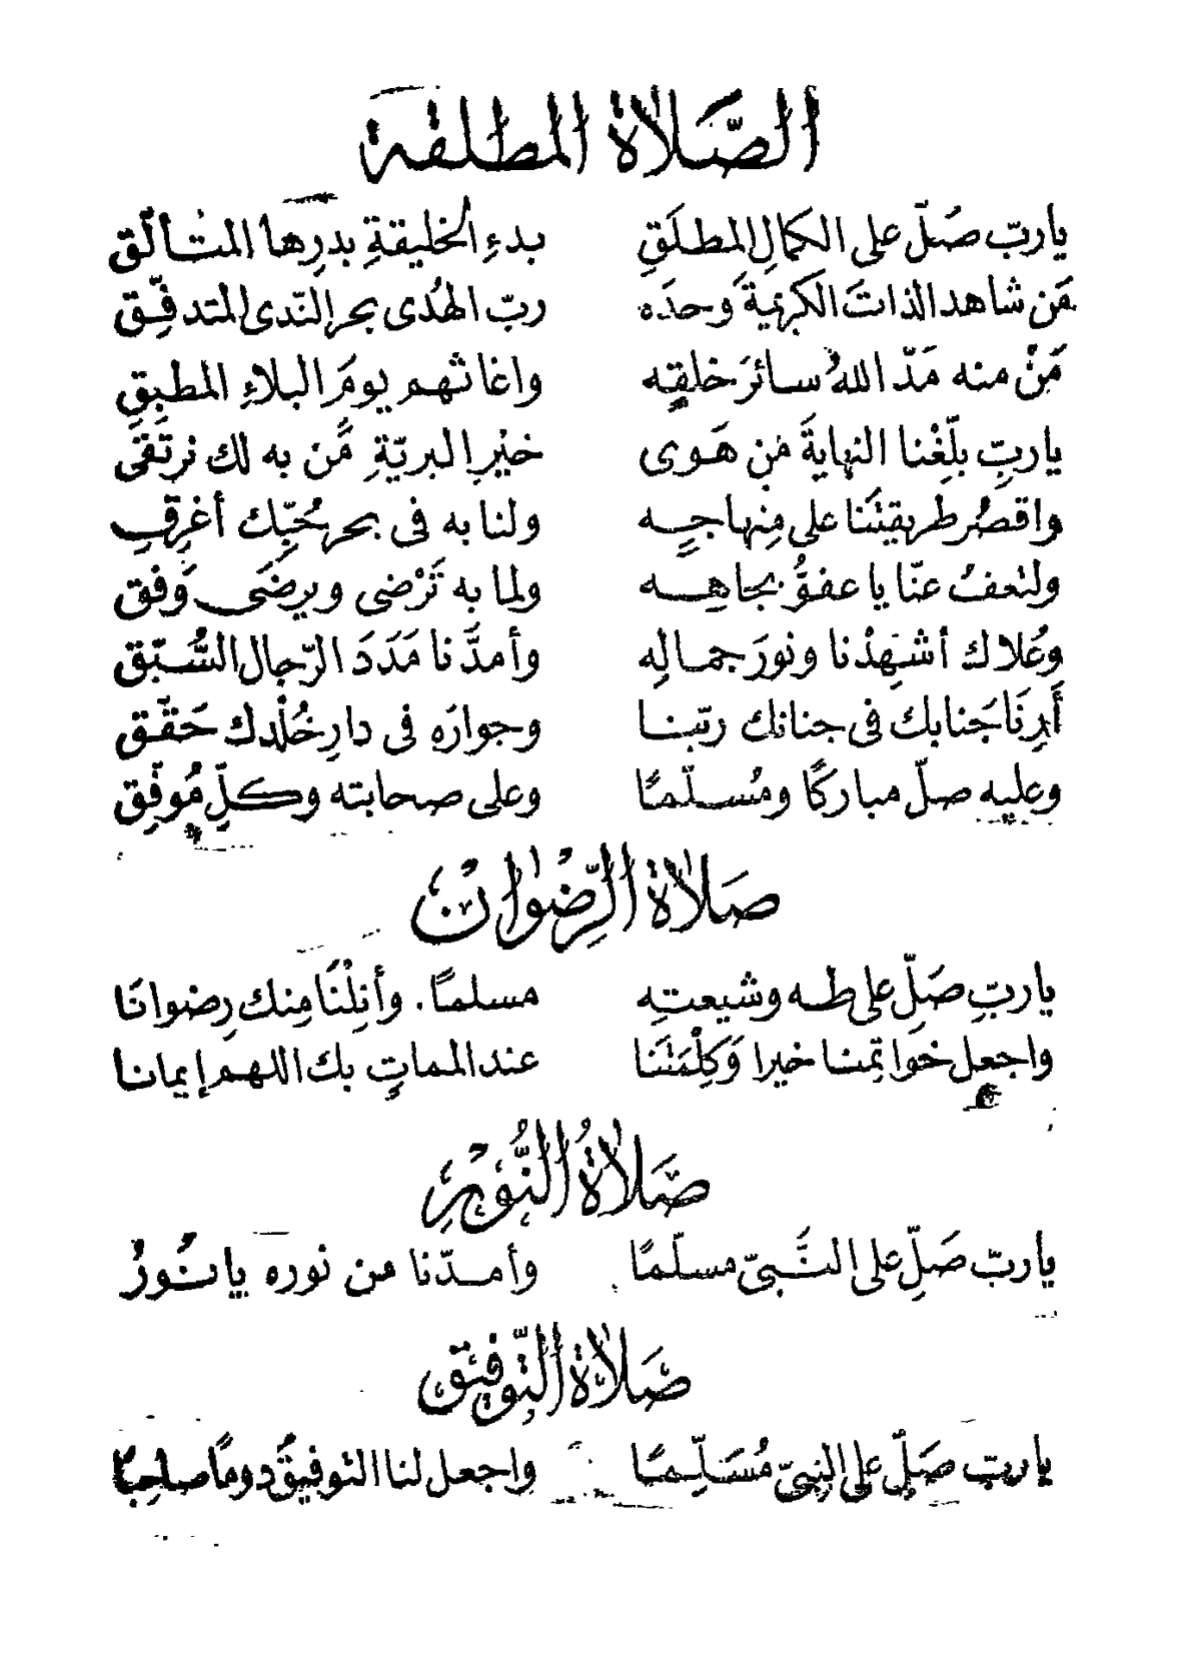 الصَّلَاة المطلقة
يا ربّ صَلّ على الكمالِ المطلَقِ بدءِ الخليقةِ بدرِها المتألّق
مَن شاهد الذاتَ الكريمةَ وحدَه ربّ الهُدى بحر النّدى المتدفِّق
مَنْ منه مَدّ اللهُ سائرَ خلقِه واغاثهم يومَ البلاءِ المطبِقِ
يا ربِّ بلّغْنا النهايةَ مِن هَوى خيْرِ البريّةِ مَّن به لك نرتقى
واقصُر طريقتَنا على مِنهاجِه ولنا به فى بحر حُبِّك أغرِقِ
ولتعفُ عنّا يا عفوُّ بجاهِه ولما به تَرْضى ويرضَى وَفق
وعُلاك أشهِدْنا ونورَ جمالِه وأمدَّنا مَدَدَ الرّجال السُّبّق
أَرِنَا جَنابك فى جنانك ربّنا وجوارَه فى دارِ خُلْدك حَقّق
وعليه صلّ مباركًا ومُسلّمًا وعلى صحابته وكلِّ مُوفّق
صَلاة الرِّضوان
يا ربِّ صَلِّ على طه وشيعتِه مسلمًا . وأنِلْنَا مِنك رِضوانَا
واجعل خَواتِمنا خيرا وَكِلْمَتَنَا عند المماتِ بك اللهم إيمانا
صَلاةُ النُّورِ
يا ربّ صَلِّ على النَّبىّ مسلّمًا وأمدّنا من نوره يا نُورُ
صَلاة التّوفيق
يا ربّ صَلِّ على النبىّ مُسَلِّمًا واجعل لنا التوفيقَ دومًا صاحِبًا